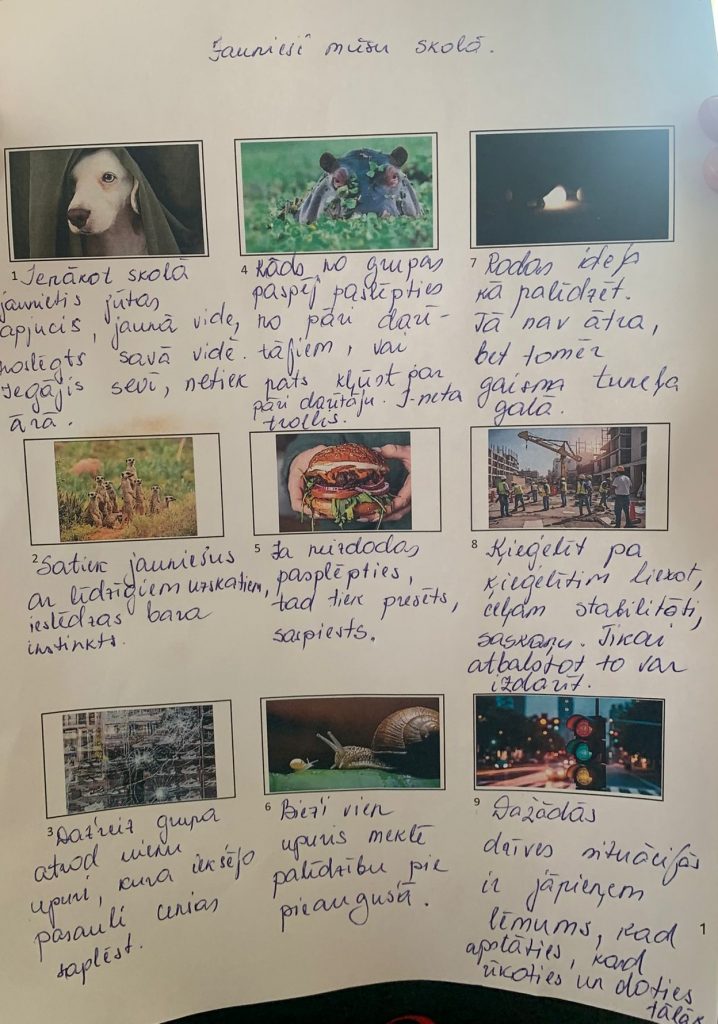 Jaunieši mūsu skolā.
1 Ienākot skolā
jaunietis jūtas
apjucis, jaunā vide,
noslēgts savā vidē.
Iegājis sevī, netiek
ārā.
2 Satiek jauniešus
ar līdzīgiem uzskatiem,
ieslēdzas bara
instinkts.
3 Dažreiz grupa
atrod vienu
upuri, kura iekšējo
pasauli cenšas
saplēst.
4 Kāds no grupas
paspēj paslēpties
no pāri darī-
tājiem, vai
pats kļūst par
pāri darītāju. I-neta
trollis.
5 Ja neizdodas
pasplēpties,
tad tiek presēts,
saspiests.
6 Bieži vien
upuris meklē
palīdzību pie
pieaugušā.
7 Rodas ideja
kā palīdzēt.
Tā nav ātra,
bet tomēr
gaisma tuneļa
galā.
8 Ķieģelīt pa
ķieģelītim liekot,
ceļam stabilitāti,
saskaņu. Tikai
atbalstot to var
izdarīt.
9 Dažādās
dzīves situācijās
ir jāpieņem
lēmums, kad
apstāties, kad
rīkoties un doties
tālāk
1